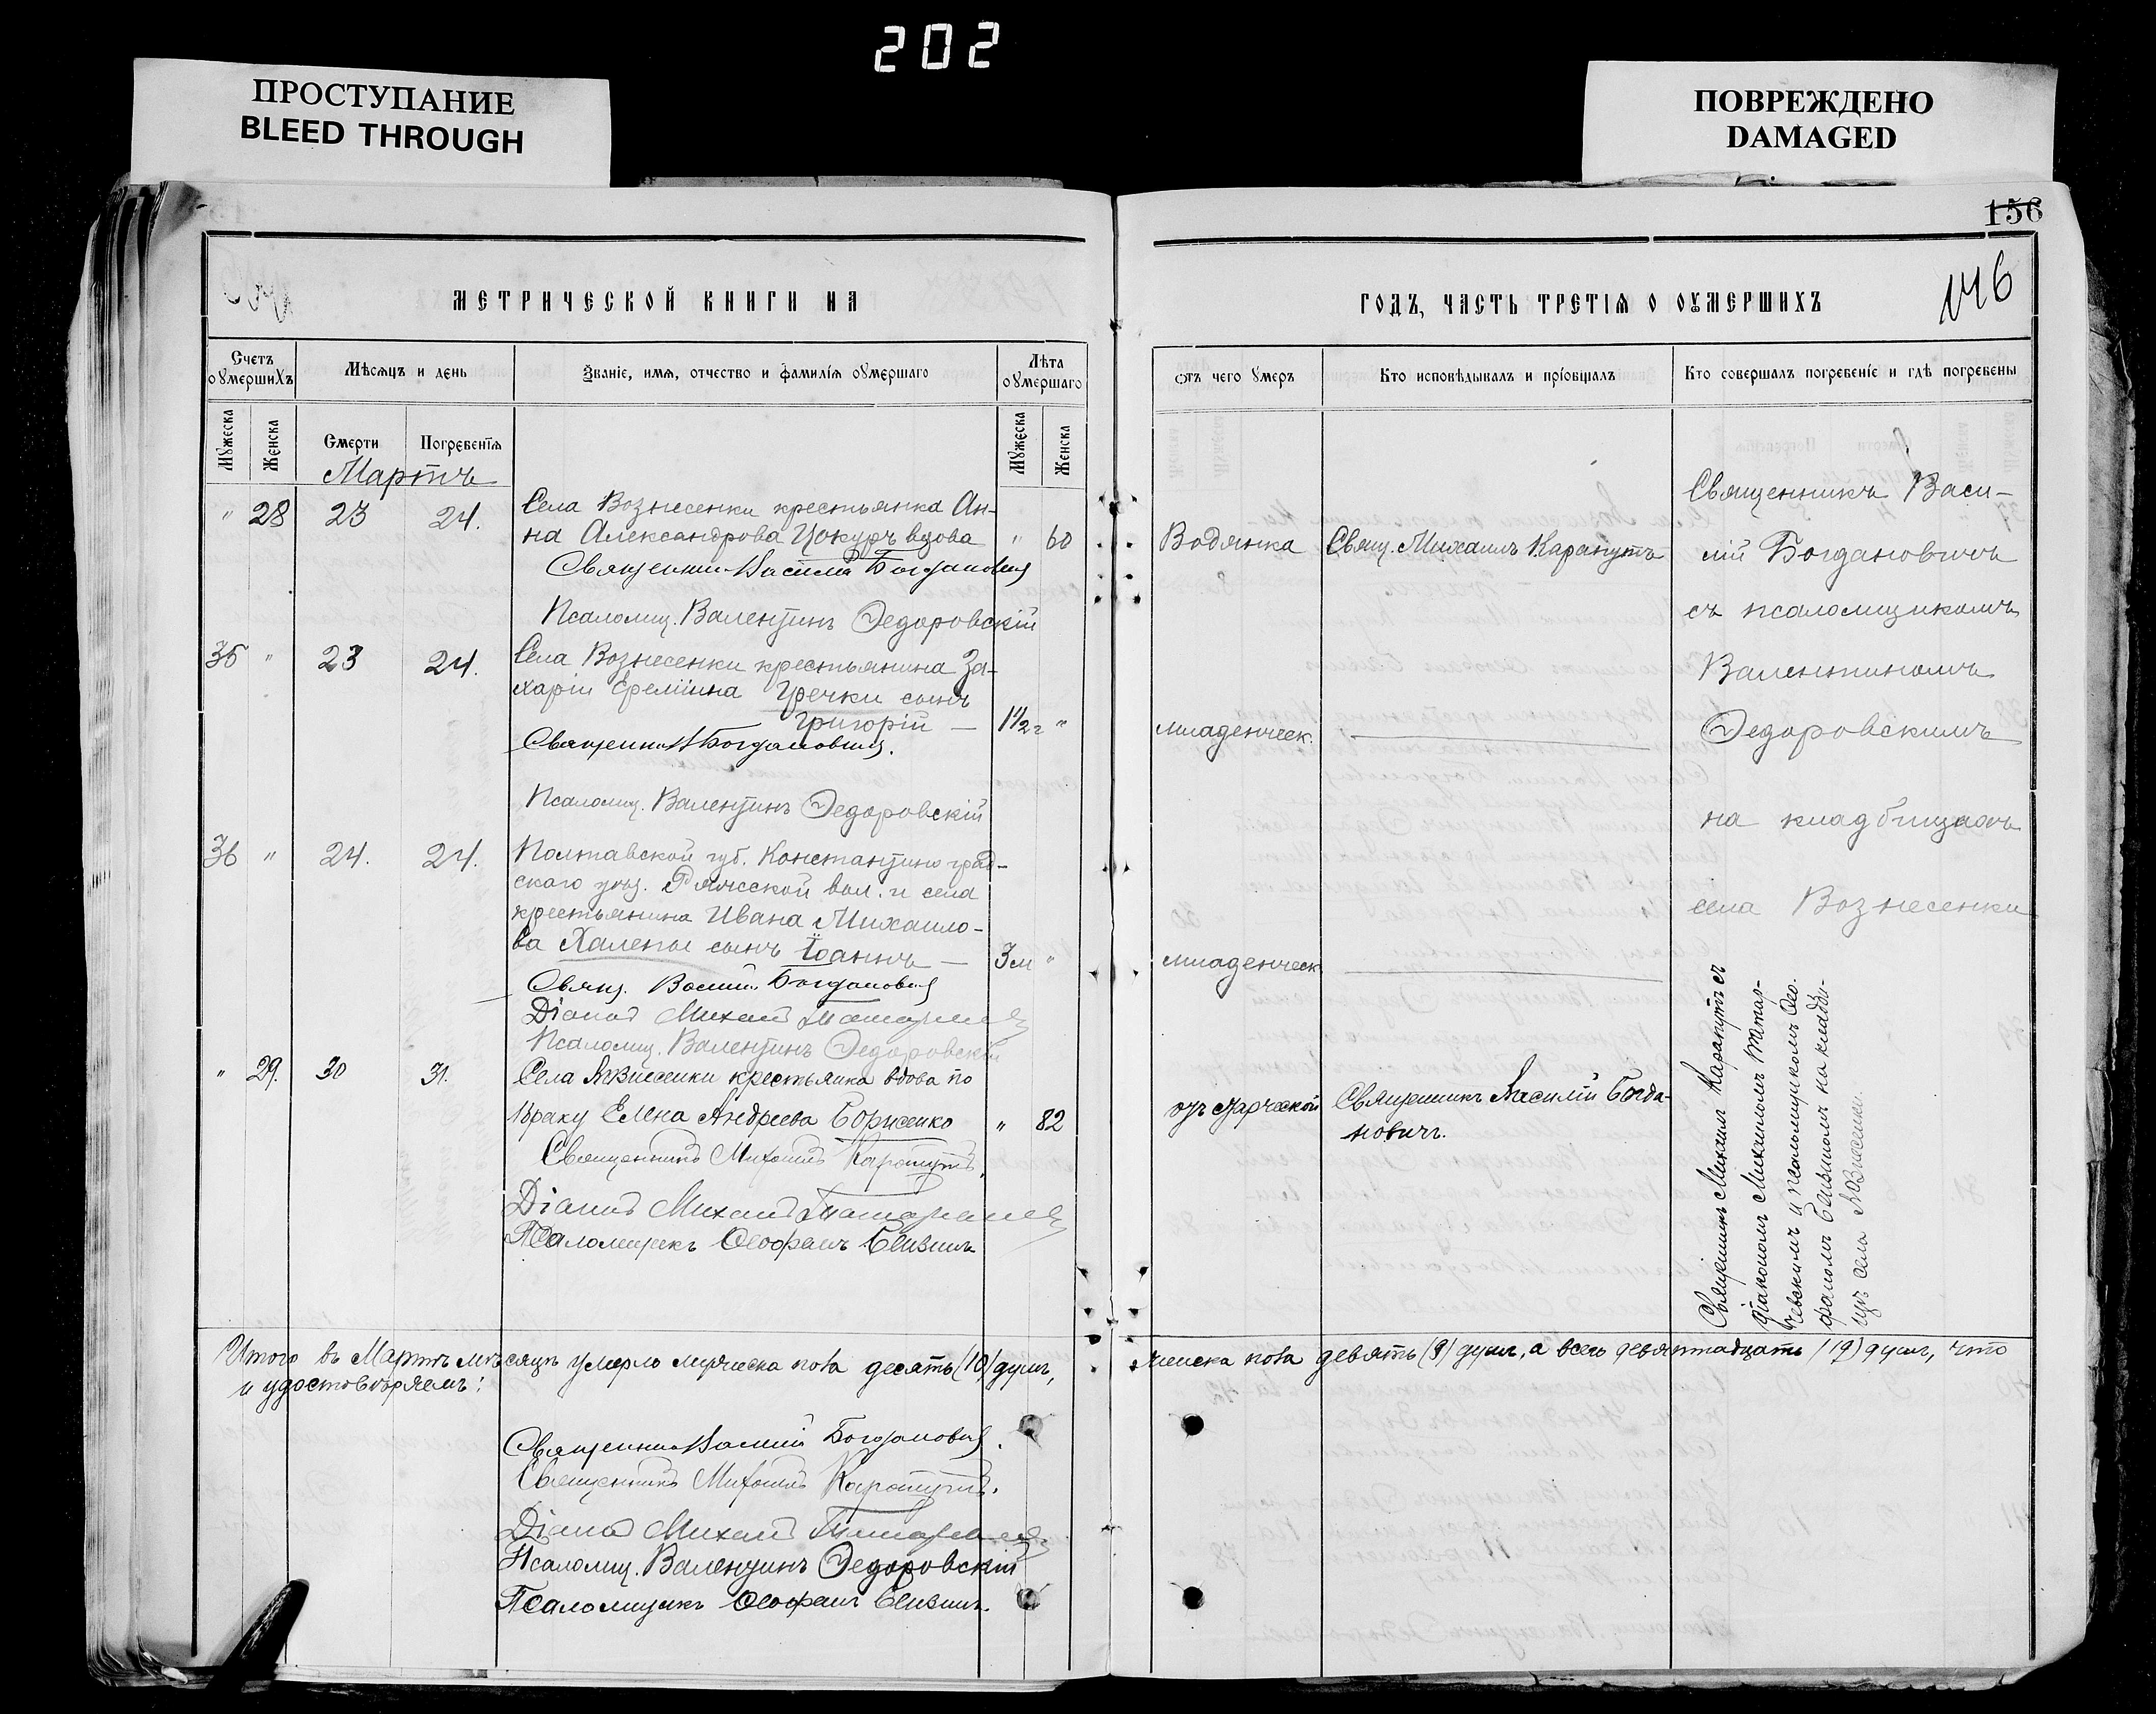 202
ПРОСТУПАНИЕ
BLEED THROUGH
ПОВРЕЖДЕНО
DAMAGED
156
146
МЕТРИЧЕСКОЙ КНИГИ НА
Счетъ оумершихъ
Мѣсяцъ и день
Званіе, имя, отчество и фамилія оумершаго
Лѣта оумершаго
Мужеска
Женска
Смерти
Погребенія
Мужеска
Женска
Мартъ
" 28 23 24.
Села Вознесенки крестьянка Ан-
на Александрова Цокуръ вдова " 60
Священникъ Василій Богдановичъ
Псаломщ. Валентинъ Ѳедоровскій
35 " 23 24.
Села Вознесенки крестьянина За-
харіи Ереміина Гречки сынъ
Григорій — 1½ г "
Священникъ В Богдановичъ.
Псаломщ. Валентинъ Ѳедоровскій
36 " 24. 24.
Полтавской губ. Константиноград-
скаго уѣз. Ряжской вол. и села
крестьянина Ивана Михаило-
ва Халепы сынъ Іоаннъ — 3 м "
Свящ. Василій Богдановичъ
Діаконъ Михаилъ
Псаломщ. Валентинъ Ѳедоровскій
" 29. 30 31.
Села Вознесенки крестьянка вдова по
браку Елена Андреева Борисенко " 82
Священникъ Михаилъ Карапутъ.
Діаконъ Михаилъ
Псаломщикъ Ѳеофанъ
Итого въ Мартѣ мѣсяцѣ умерло мужеска пола десять (10) душъ,
и удостовѣряемъ:
Священникъ Василій Богдановичъ.
Священникъ Михаилъ Карапутъ.
Діаконъ Михаилъ
Псаломщ. Валентинъ Ѳедоровскій
Псаломщикъ Ѳеофанъ
ГОДЪ, ЧАСТЬ ТРЕТІЯ О ОУМЕРШИХЪ
Отъ чего умеръ
Кто исповѣдывалъ и пріобщалъ
Кто совершалъ погребеніе и гдѣ погребены
Водянка
Свящ. Михаилъ Карапутъ
Священникъ Васи-
лій Богдановичъ
съ псаломщикомъ
Валентиномъ
Ѳедоровскимъ
на кладбищахъ
села Вознесенки
младенческ.
младенческ
отъ старческой
Священникъ Василій Богда-
новичъ.
Священникъ Михаилъ Карапутъ съ
діакономъ Михаиломъ Татар-
чевскимъ и псаломщикомъ Ѳео-
фаномъ на кладби-
щѣ села Вознесенки.
женска пола девять (9) душъ, а всего девятнадцать (19) душъ, что